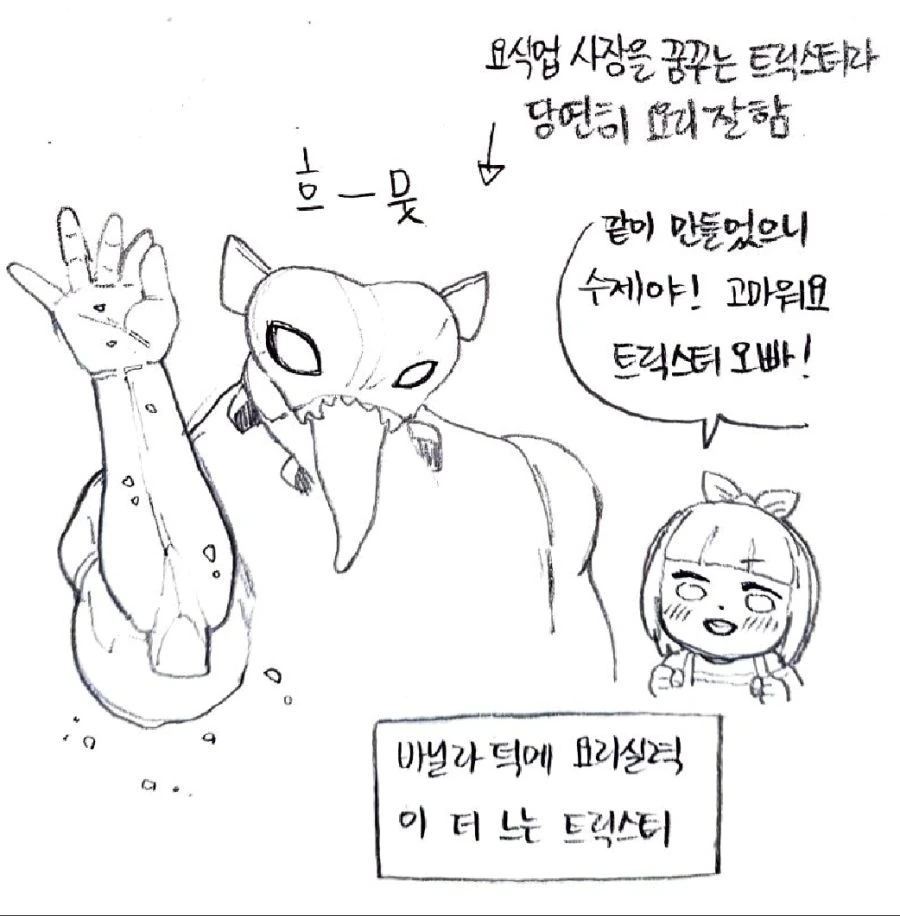 요식업 사장을 꿈꾸는 트릭스터라
당연히 요리 잘함
흐-뭇
같이 만들었으니
수제야! 고마워요
트릭스터 오빠!
바닐라 덕에 요리실력
이 더 느는 트릭스터